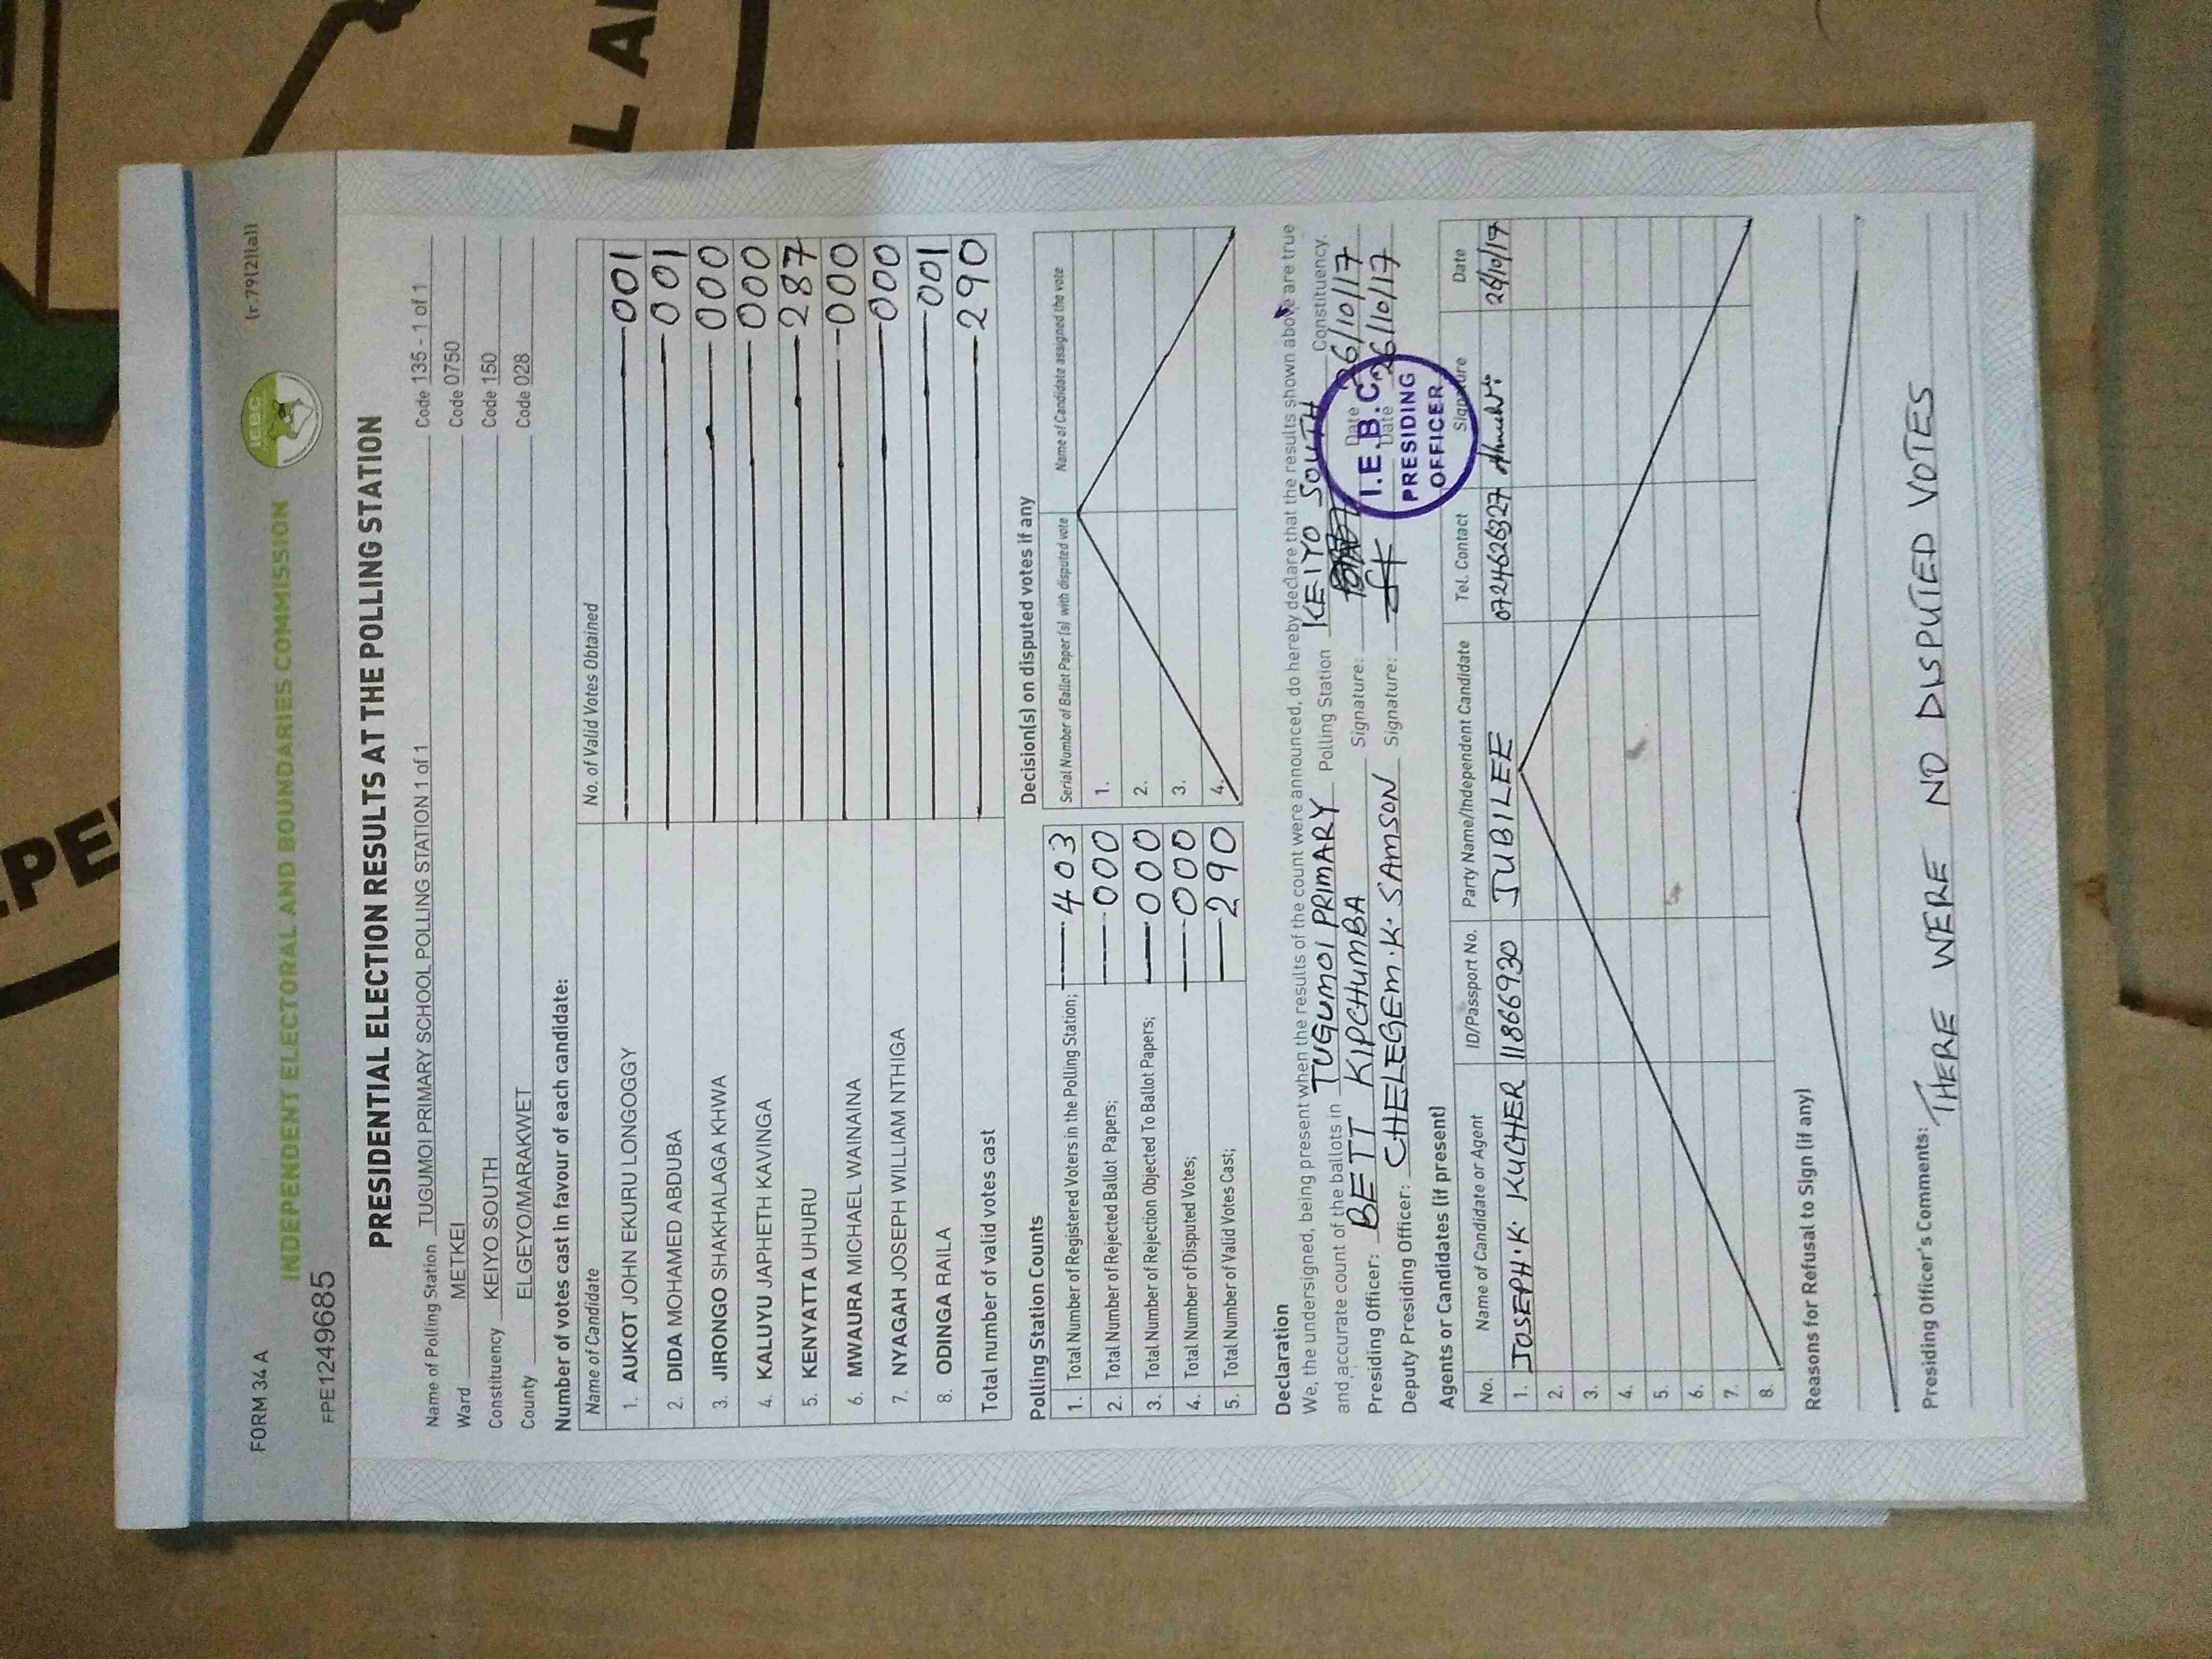 FORM 34 A
(r.79(2)(a))
INDEPENDENT ELECTORAL AND BOUNDARIES COMMISSION
IEBC
FPE1249685
PRESIDENTIAL ELECTION RESULTS AT THE POLLING STATION
Name of Polling Station TUGUMOI PRIMARY SCHOOL POLLING STATION 1 of 1 Code 135 - 1 of 1
Ward METKEI Code 0750
Constituency KEIYO SOUTH Code 150
County ELGEYO/MARAKWET Code 028
Number of votes cast in favour of each candidate:
Name of Candidate No. of Valid Votes Obtained
1. AUKOT JOHN EKURU LONGOGGY 001
2. DIDA MOHAMED ABDUBA 001
3. JIRONGO SHAKHALAGA KHWA 000
4. KALUYU JAPHETH KAVINGA 000
5. KENYATTA UHURU 287
6. MWAURA MICHAEL WAINAINA 000
7. NYAGAH JOSEPH WILLIAM NTHIGA 000
8. ODINGA RAILA 001
Total number of valid votes cast 290
Polling Station Counts
1. Total Number of Registered Voters in the Polling Station; 403
2. Total Number of Rejected Ballot Papers; 000
3. Total Number of Rejection Objected To Ballot Papers; 000
4. Total Number of Disputed Votes; 000
5. Total Number of Valid Votes Cast; 290
Decision(s) on disputed votes if any
Serial Number of Ballot Paper(s) with disputed vote Name of Candidate assigned the vote
1.
2.
3.
4.
Declaration
We, the undersigned, being present when the results of the count were announced, do hereby declare that the results shown above are true
and accurate count of the ballots in TUGUMOI PRIMARY Polling Station KEIYO SOUTH Constituency.
Presiding Officer: BETT KIPCHUMBA Signature: Date 26/10/17
Deputy Presiding Officer: CHELEGEM.K. SAMSON Signature: Date 26/10/17
I.E.B.C.
PRESIDING
OFFICER
Agents or Candidates (if present)
No. Name of Candidate or Agent ID/Passport No. Party Name/Independent Candidate Tel. Contact Signature Date
1. JOSEPH.K. KUCHER 11866930 JUBILEE 0724626327 26/10/17
2.
3.
4.
5.
6.
7.
8.
Reasons for Refusal to Sign (if any)
Presiding Officer's Comments:
THERE WERE NO DISPUTED VOTES